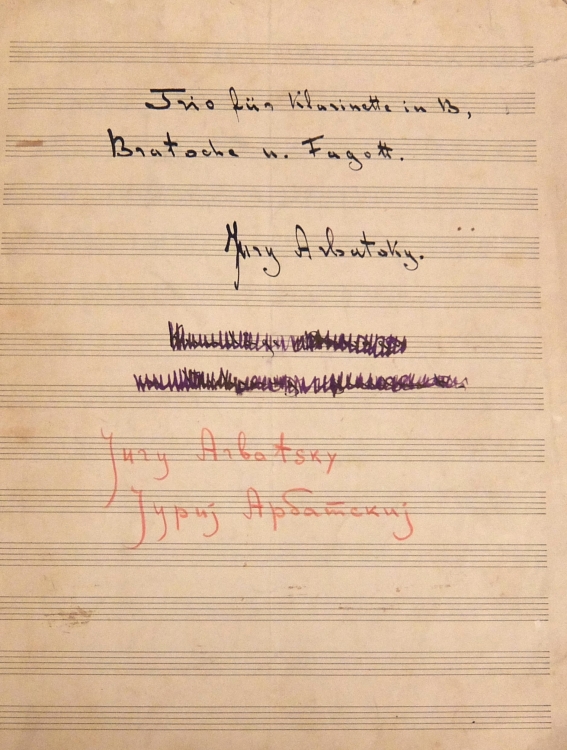 Trio für Klarinette in B,
Bratsche u. Fagott.
Jury Arbatsky.
Jury Arbatsky
Јуриј Арбатскиј